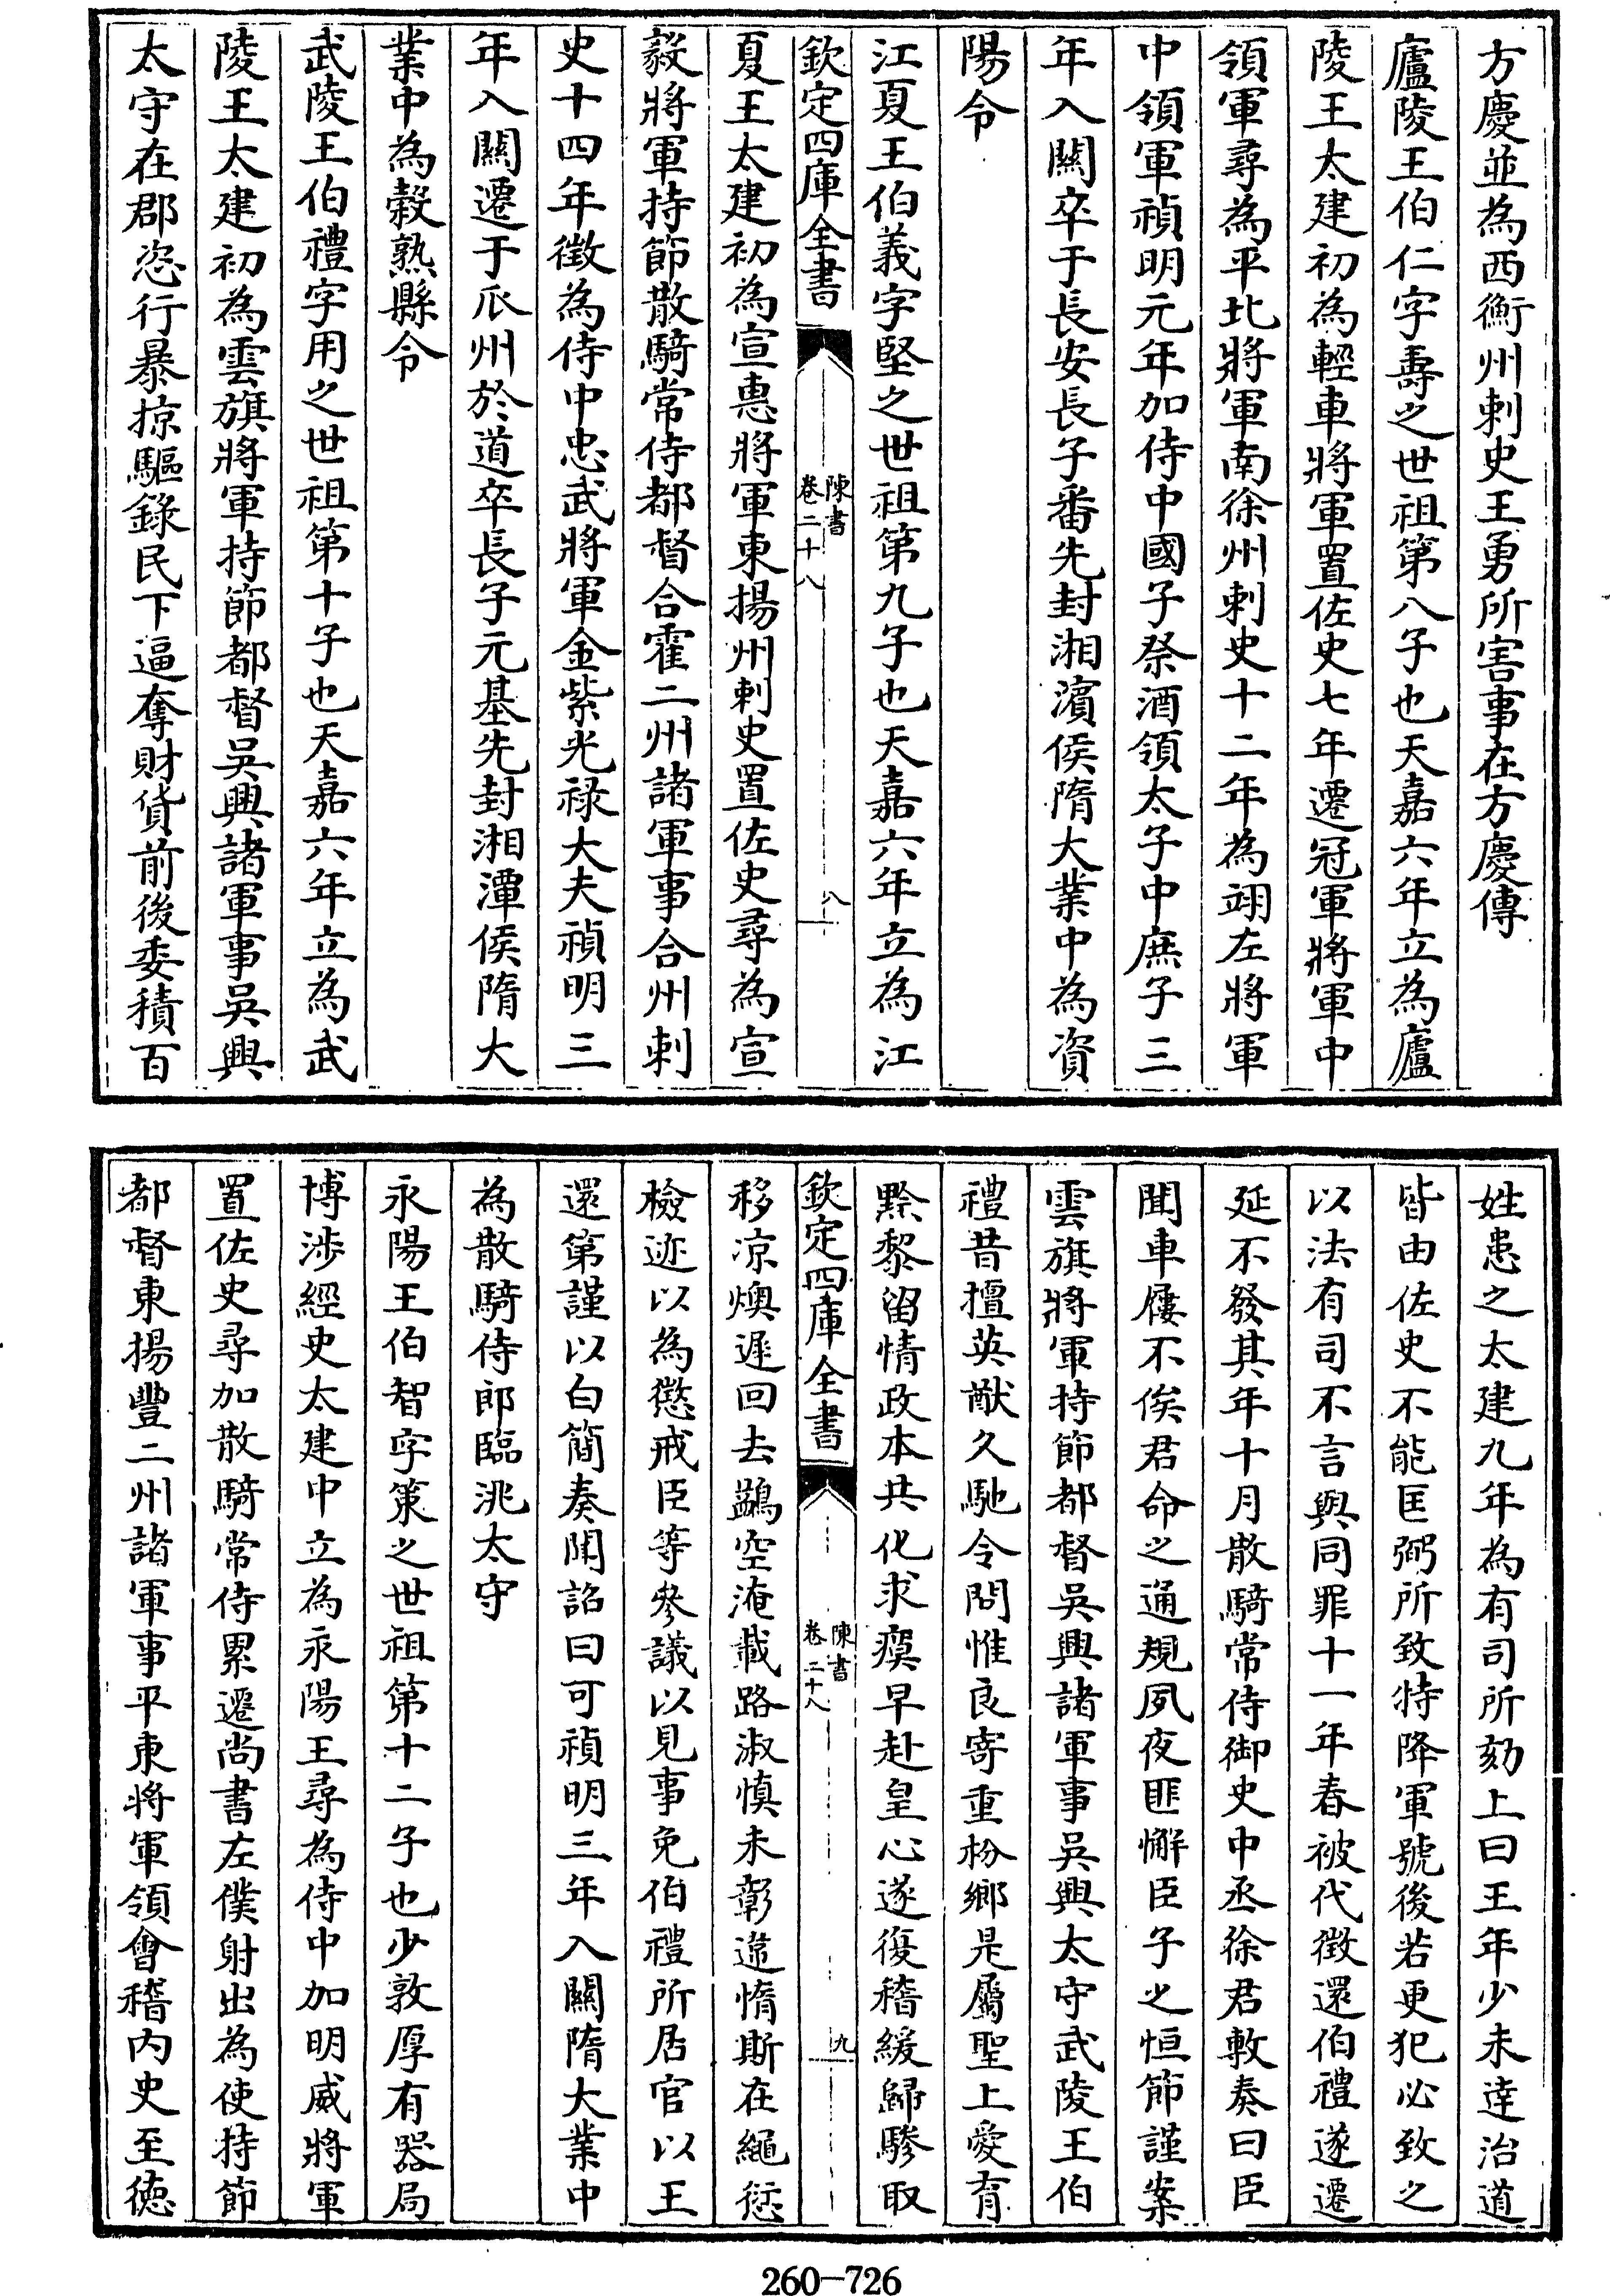 方慶並為西衡州刺史王勇所害事在方慶傳
廬陵王伯仁字壽之世祖第八子也天嘉六年立為廬
陵王太建初為輕車將軍置佐史七年遷冠軍將軍中
領軍尋為平北將軍南徐州刺史十二年為翊左將軍
中領軍禎明元年加侍中國子祭酒領太子中庶子三
年入關卒于長安長子番先封湘濱侯隋大業中為資
陽令
江夏王伯義字堅之世祖第九子也天嘉六年立為江
欽定四庫全書
陳書
卷二十八
八
夏王太建初為宣惠將軍東揚州刺史置佐史尋為宣
毅將軍持節散騎常侍都督合霍二州諸軍事合州刺
史十四年徵為侍中忠武將軍金紫光祿大夫禎明三
年入關遷于瓜州於道卒長子元基先封湘潭侯隋大
業中為穀熟縣令
武陵王伯禮字用之世祖第十子也天嘉六年立為武
陵王太建初為雲旗將軍持節都督吳興諸軍事吳興
太守在郡恣行暴掠驅錄民下逼奪財貨前後委積百
姓患之太建九年為有司所劾上曰王年少未達治道
皆由佐史不能匡弼所致特降軍號後若更犯必致之
以法有司不言與同罪十一年春被代徵還伯禮遂遷
延不發其年十月散騎常侍御史中丞徐君敷奏曰臣
聞車屨不俟君命之通規夙夜匪懈臣子之恒節謹案
雲旗將軍持節都督吳興諸軍事吳興太守武陵王伯
禮昔擅英猷久馳令問惟良寄重枌鄉是屬聖上愛育
黔黎留情政本共化求瘼早赴皇心遂復稽緩歸驂取
欽定四庫全書
陳書
卷二十八
九
移凉燠遲回去鷁空淹載路淑慎未彰違惰斯在繩愆
檢迹以為懲戒臣等參議以見事免伯禮所居官以王
還第謹以白簡奏聞詔曰可禎明三年入關隋大業中
為散騎侍郎臨洮太守
永陽王伯智字策之世祖第十二子也少敦厚有器局
博涉經史太建中立為永陽王尋為侍中加明威將軍
置佐史尋加散騎常侍累遷尚書左僕射出為使持節
都督東揚豐二州諸軍事平東將軍領會稽内史至德
260-726